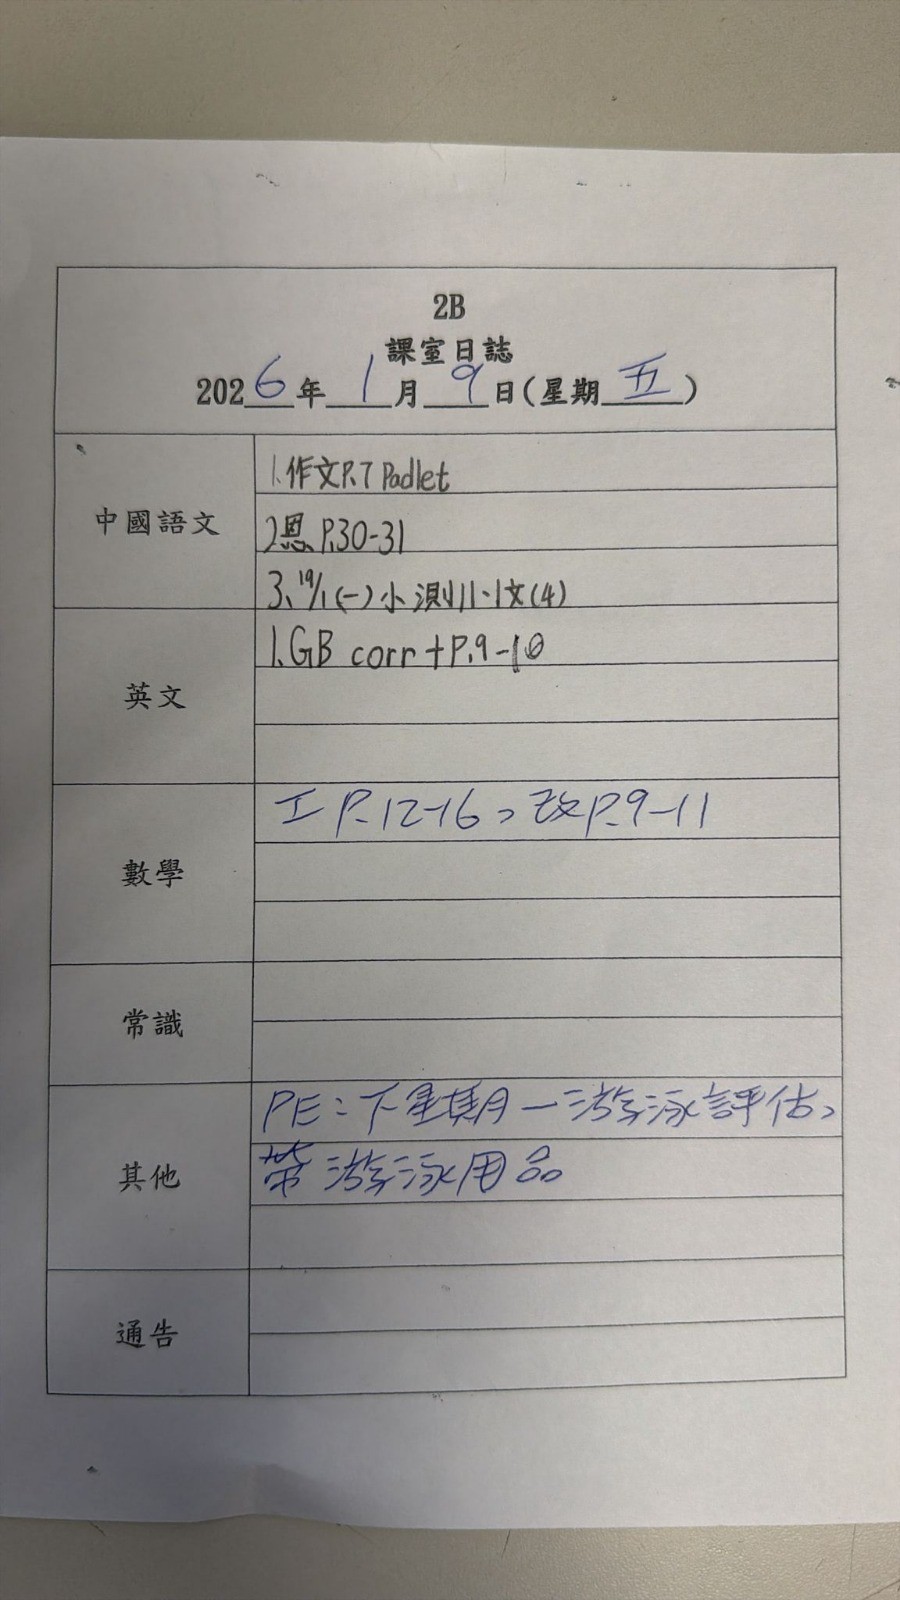 2B
課室日誌
2026年1月9日(星期五)
中國語文
1.作文P.7 Padlet
2.恩P.30-31
3.19/1(一)小測11、1文(4)
英文
1.GB corr+P.9-10
數學
工P.12-16，改P.9-11
常識
其他
PE：下星期一游泳評估，
帶游泳用品
通告